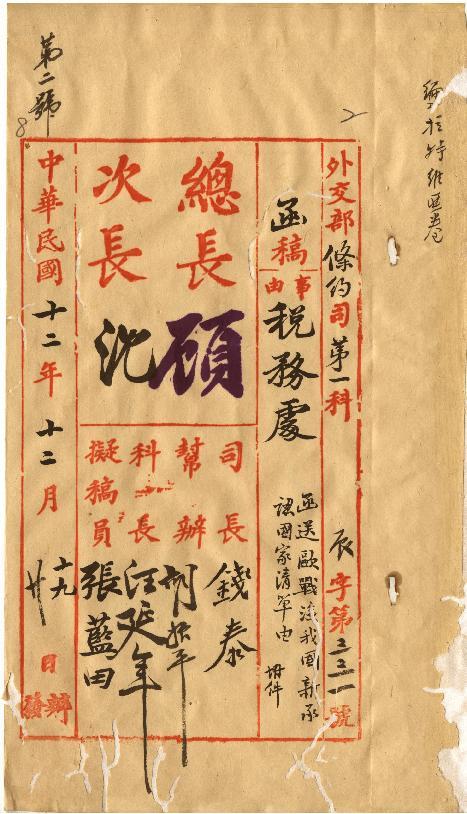 第二號
8
2
外交部條約司第一科
辰字第三三一號
函稿
事由
稅務處
函送歐戰後我國新承
認國家清單由
附件
總長
顧
次長
沈
司長
錢泰
幫辦
科長
汪延年
擬稿員
張藍田
中華民國十二年十二月
十九
廿
日
辦
發